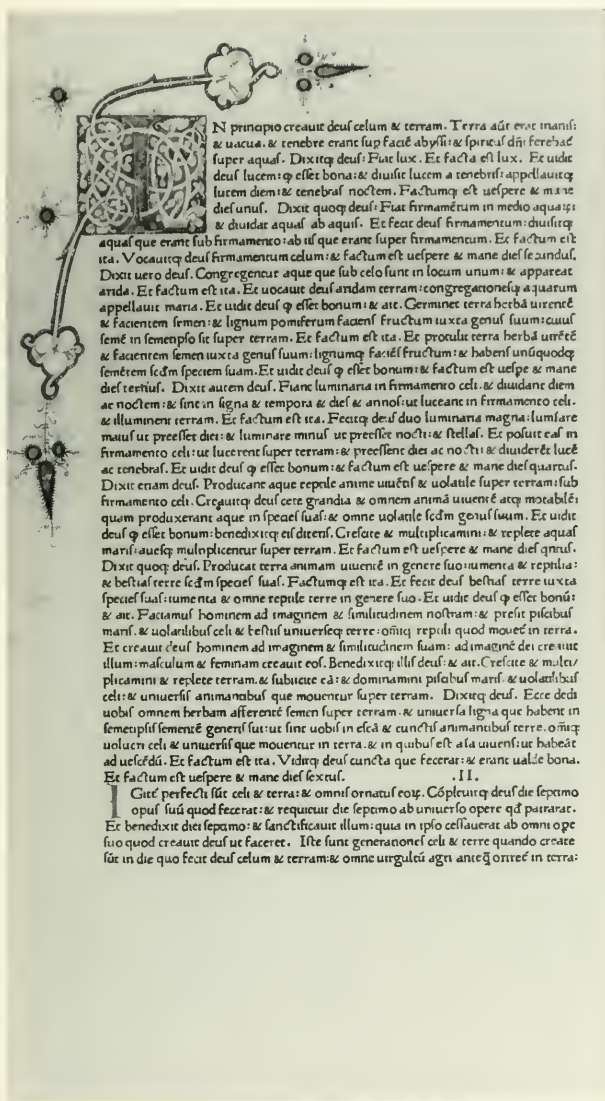 IN principio creauit deuſ celum & terram. Terra aūt erat inaniſ:
& uacua. & tenebre erant ſup facié abyſſi: & ſpirituſ dñi ferebat̃
ſuper aquaſ. Dixitq; deuſ: Fiat lux. Et facta eſt lux. Et uidit
deuſ lucem: ꝙ eſſet bona: & diuiſit lucem a tenebriſ: appellauitq;
lucem diem: & tenebraſ noctem. Factumq; eſt ueſpere & mane
dieſ unuſ. Dixit quoq; deuſ: Fiat firmamétum in medio aquaꝝ:
& diuidat aquaſ ab aquiſ. Et fecit deuſ firmamentum: diuiſitq;
aquaſ que erant ſub firmamento: ab iiſ que erant ſuper firmamentum. Et factum eſt
ita. Vocauitq; deuſ firmamentum celum: & factum eſt ueſpere & mane dieſ ſecunduſ.
Dixit uero deuſ. Congregentur aque que ſub celo ſunt in locum unum: & appareat
arida. Et factum eſt ita. Et uocauit deuſ aridam terram: congregationeſq; aquarum
appellauit maria. Et uidit deuſ ꝙ eſſet bonum: & ait. Germinet terra herbã uirenté
& facientem ſemen: & lignum pomiferum facienſ fructum iuxta genuſ ſuum: cuiuſ
ſemé in ſemetipſo ſit ſuper terram. Et factum eſt ita. Et protulit terra herbã uirété
& facientem ſemen iuxta genuſ ſuum: lignumq; faciéſ fructum: & habenſ unũquodq;
ſemétem ſcďm ſpeciem ſuam. Et uidit deuſ ꝙ eſſet bonum: & factum eſt ueſpe & mane
dieſ tertiuſ. Dixit autem deuſ. Fiant luminaria in firmamento celi. & diuidant diem
ac noctem: & ſint in ſigna & tempora & dieſ & annoſ: ut luceant in firmamento celi.
& illuminent terram. Et factum eſt ita. Fecitq; deuſ duo luminaria magna: lumiare
maiuſ ut preeſſet diei: & luminare minuſ ut preeſſet nocti: & ſtellaſ. Et poſuit eaſ in
firmamento celi: ut lucerent ſuper terram: & preeſſent diei ac nocti: & diuiderét lucé
ac tenebraſ. Et uidit deuſ ꝙ eſſet bonum: & factum eſt ueſpere & mane dieſ quartuſ.
Dixit etiam deuſ. Producant aque reptile anime uiuétiſ & uolatile ſuper terram: ſub
firmamento celi. Creauitq; deuſ cete grandia & omnem animã uiuenté atq; motabilé:
quam produxerant aque in ſpecieſ ſuaſ: & omne uolatile ſcďm genuſ ſuum. Et uidit
deuſ ꝙ eſſet bonum: benedixitq; eiſ dicenſ. Creſcite & multiplicamini: & replete aquaſ
mariſ: aueſq; multiplicentur ſuper terram. Et factum eſt ueſpere & mane dieſ qntuſ.
Dixit quoq; deuſ. Producat terra animam uiuenté in genere ſuo: iumenta & reptilia:
& beſtiaſ terre ſcďm ſpecieſ ſuaſ. Factumq; eſt ita. Et fecit deuſ beſtiaſ terre iuxta
ſpecieſ ſuaſ: iumenta & omne reptile terre in genere ſuo. Et uidit deuſ ꝙ eſſet bonũ:
& ait. Faciamuſ hominem ad imaginem & ſimilitudinem noſtram: & preſit piſcibuſ
mariſ. & uolatilibuſ celi & beſtiiſ uniuerſeq; terre: omiq; reptili quod mouet̃ in terra.
Et creauit deuſ hominem ad imaginem & ſimilitudinem ſuam: ad imaginé dei creauit
illum: maſculum & feminam creauit eoſ. Benedixitq; illiſ deuſ: & ait. Creſcite & multi/
plicamini & replete terram. & ſubiicite eã: & dominamini piſcibuſ mariſ. & uolatilibuſ
celi: & uniuerſiſ animantibuſ que mouentur ſuper terram. Dixitq; deuſ. Ecce dedi
uobiſ omnem herbam afferenté ſemen ſuper terram. & uniuerſa ligna que habent in
ſemetipſiſ ſementé generiſ ſui: ut ſint uobiſ in eſcã & cunctiſ animantibuſ terre. omiq;
uolucri celi & uniuerſiſ que mouentur in terra. & in quibuſ eſt aĩa uiuenſ: ut habeãt
ad ueſcédũ. Et factum eſt ita. Viditq; deuſ cuncta que fecerat: & erant ualde bona.
Et factum eſt ueſpere & mane dieſ ſextuſ. .II.
IGitĉ perfecti ſũt celi & terra: & omniſ ornatuſ eoꝝ. Cõpleuitq; deuſ die ſeptimo
opuſ ſuũ quod fecerat: & requieuit die ſeptimo ab uniuerſo opere qď patrarat.
Et benedixit diei ſeptimo: & ſanctificauit illum: quia in ipſo ceſſauerat ab omni ope
ſuo quod creauit deuſ ut faceret. Iſte ſunt generationeſ celi & terre quando create
ſũt in die quo fecit deuſ celum & terram: & omne uirgultũ agri anteq̃ oriret̃ in terra: